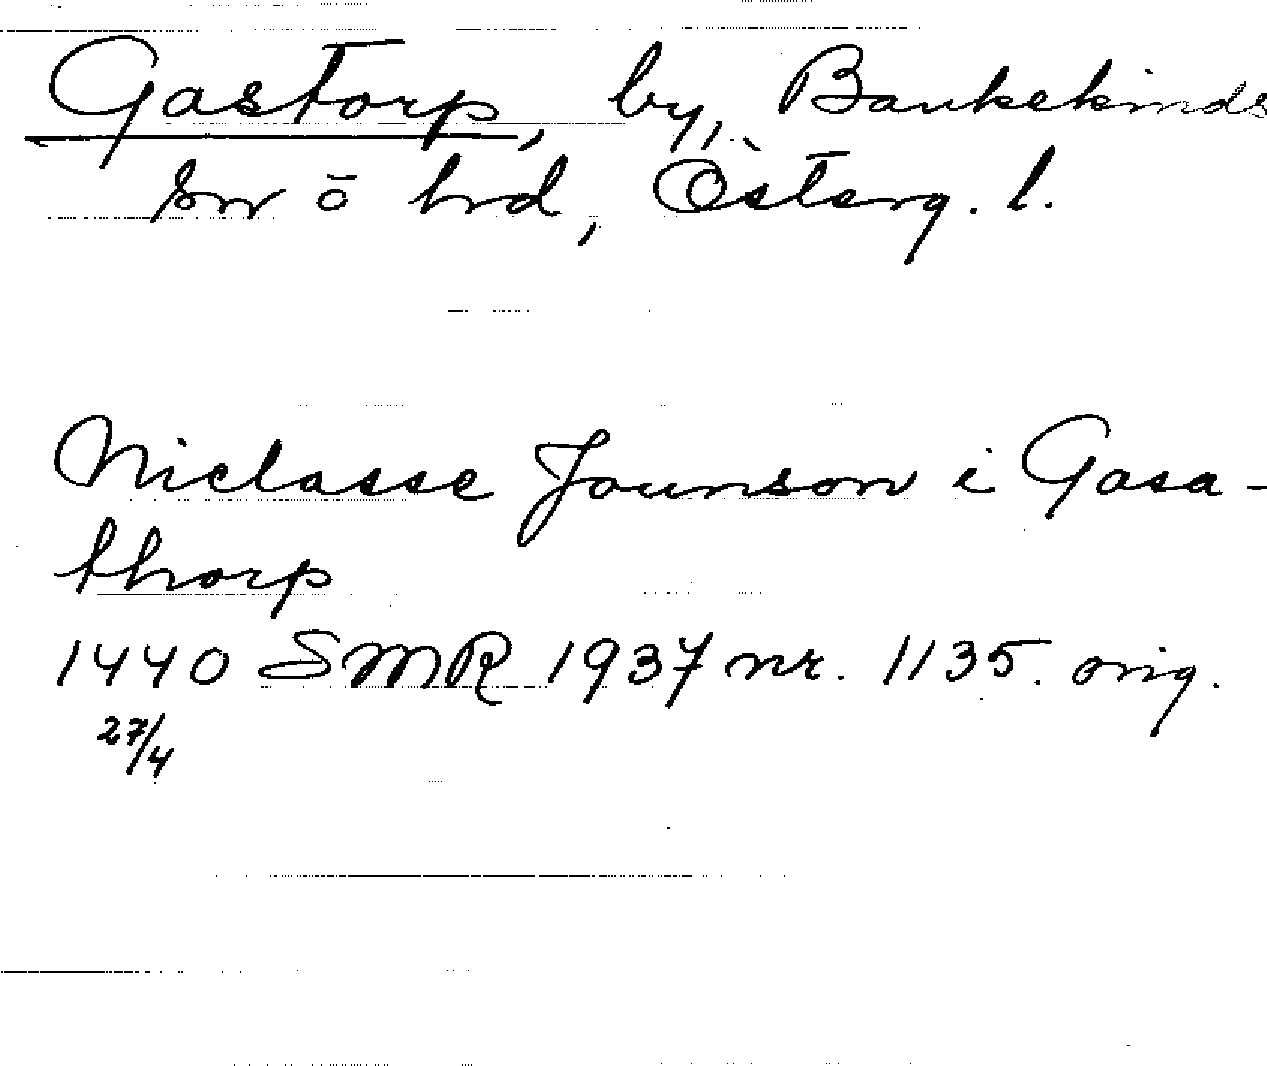 Gastorp, by, Bankekinds
sn o hd, Österg. l.
Niclasse Jounson i Gasa-
thorp
1440 SMR 1937 nr. 1135. orig.
27/4